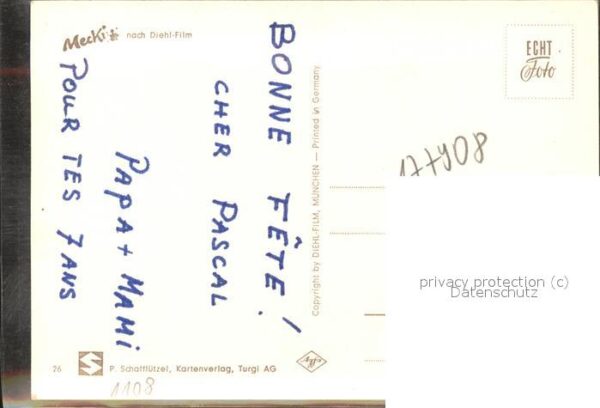 Mecki nach Diehl-Film
BONNE FÊTE!
CHER PASCAL
PAPA + MAMI
POUR TES 7 ANS
Copyright by DIEHL-FILM, MÜNCHEN — Printed in Germany
ECHT
Foto
privacy protection (c)
Datenschutz
76
P. Schafflützel, Kartenverlag, Turgi AG
1108